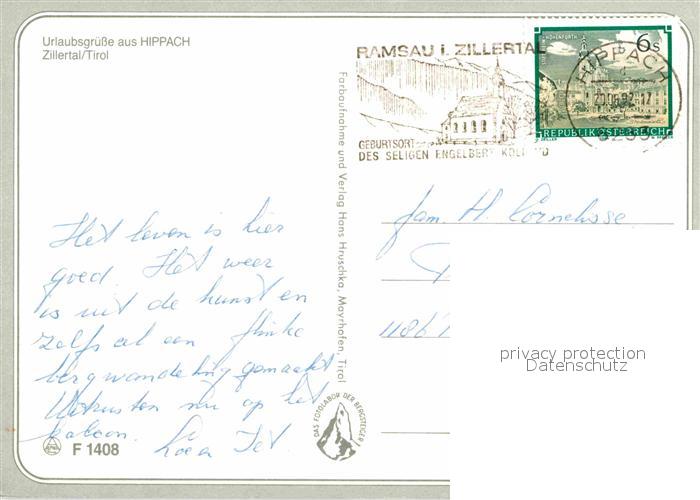 Urlaubsgrüße aus HIPPACH
Zillertal/Tirol
RAMSAU i. ZILLERTAL
GEBURTSORT
DES SELIGEN ENGELBERT KOLLAND
HIPPACH
6s
REPUBLIK ÖSTERREICH
Farbaufnahme und Verlag Hans Hruschka, Mayrhofen, Tirol
Het leven is hier
goed. Het weer
is uit de kunst en
zelfs al een flinke
bergwandeling gemaakt
Uitrusten nu op het
balcon.
F 1408
DAS FOTOLABOR DER BERGSTEIGER
fam. H. Cornelisse
1186
privacy protection
Datenschutz